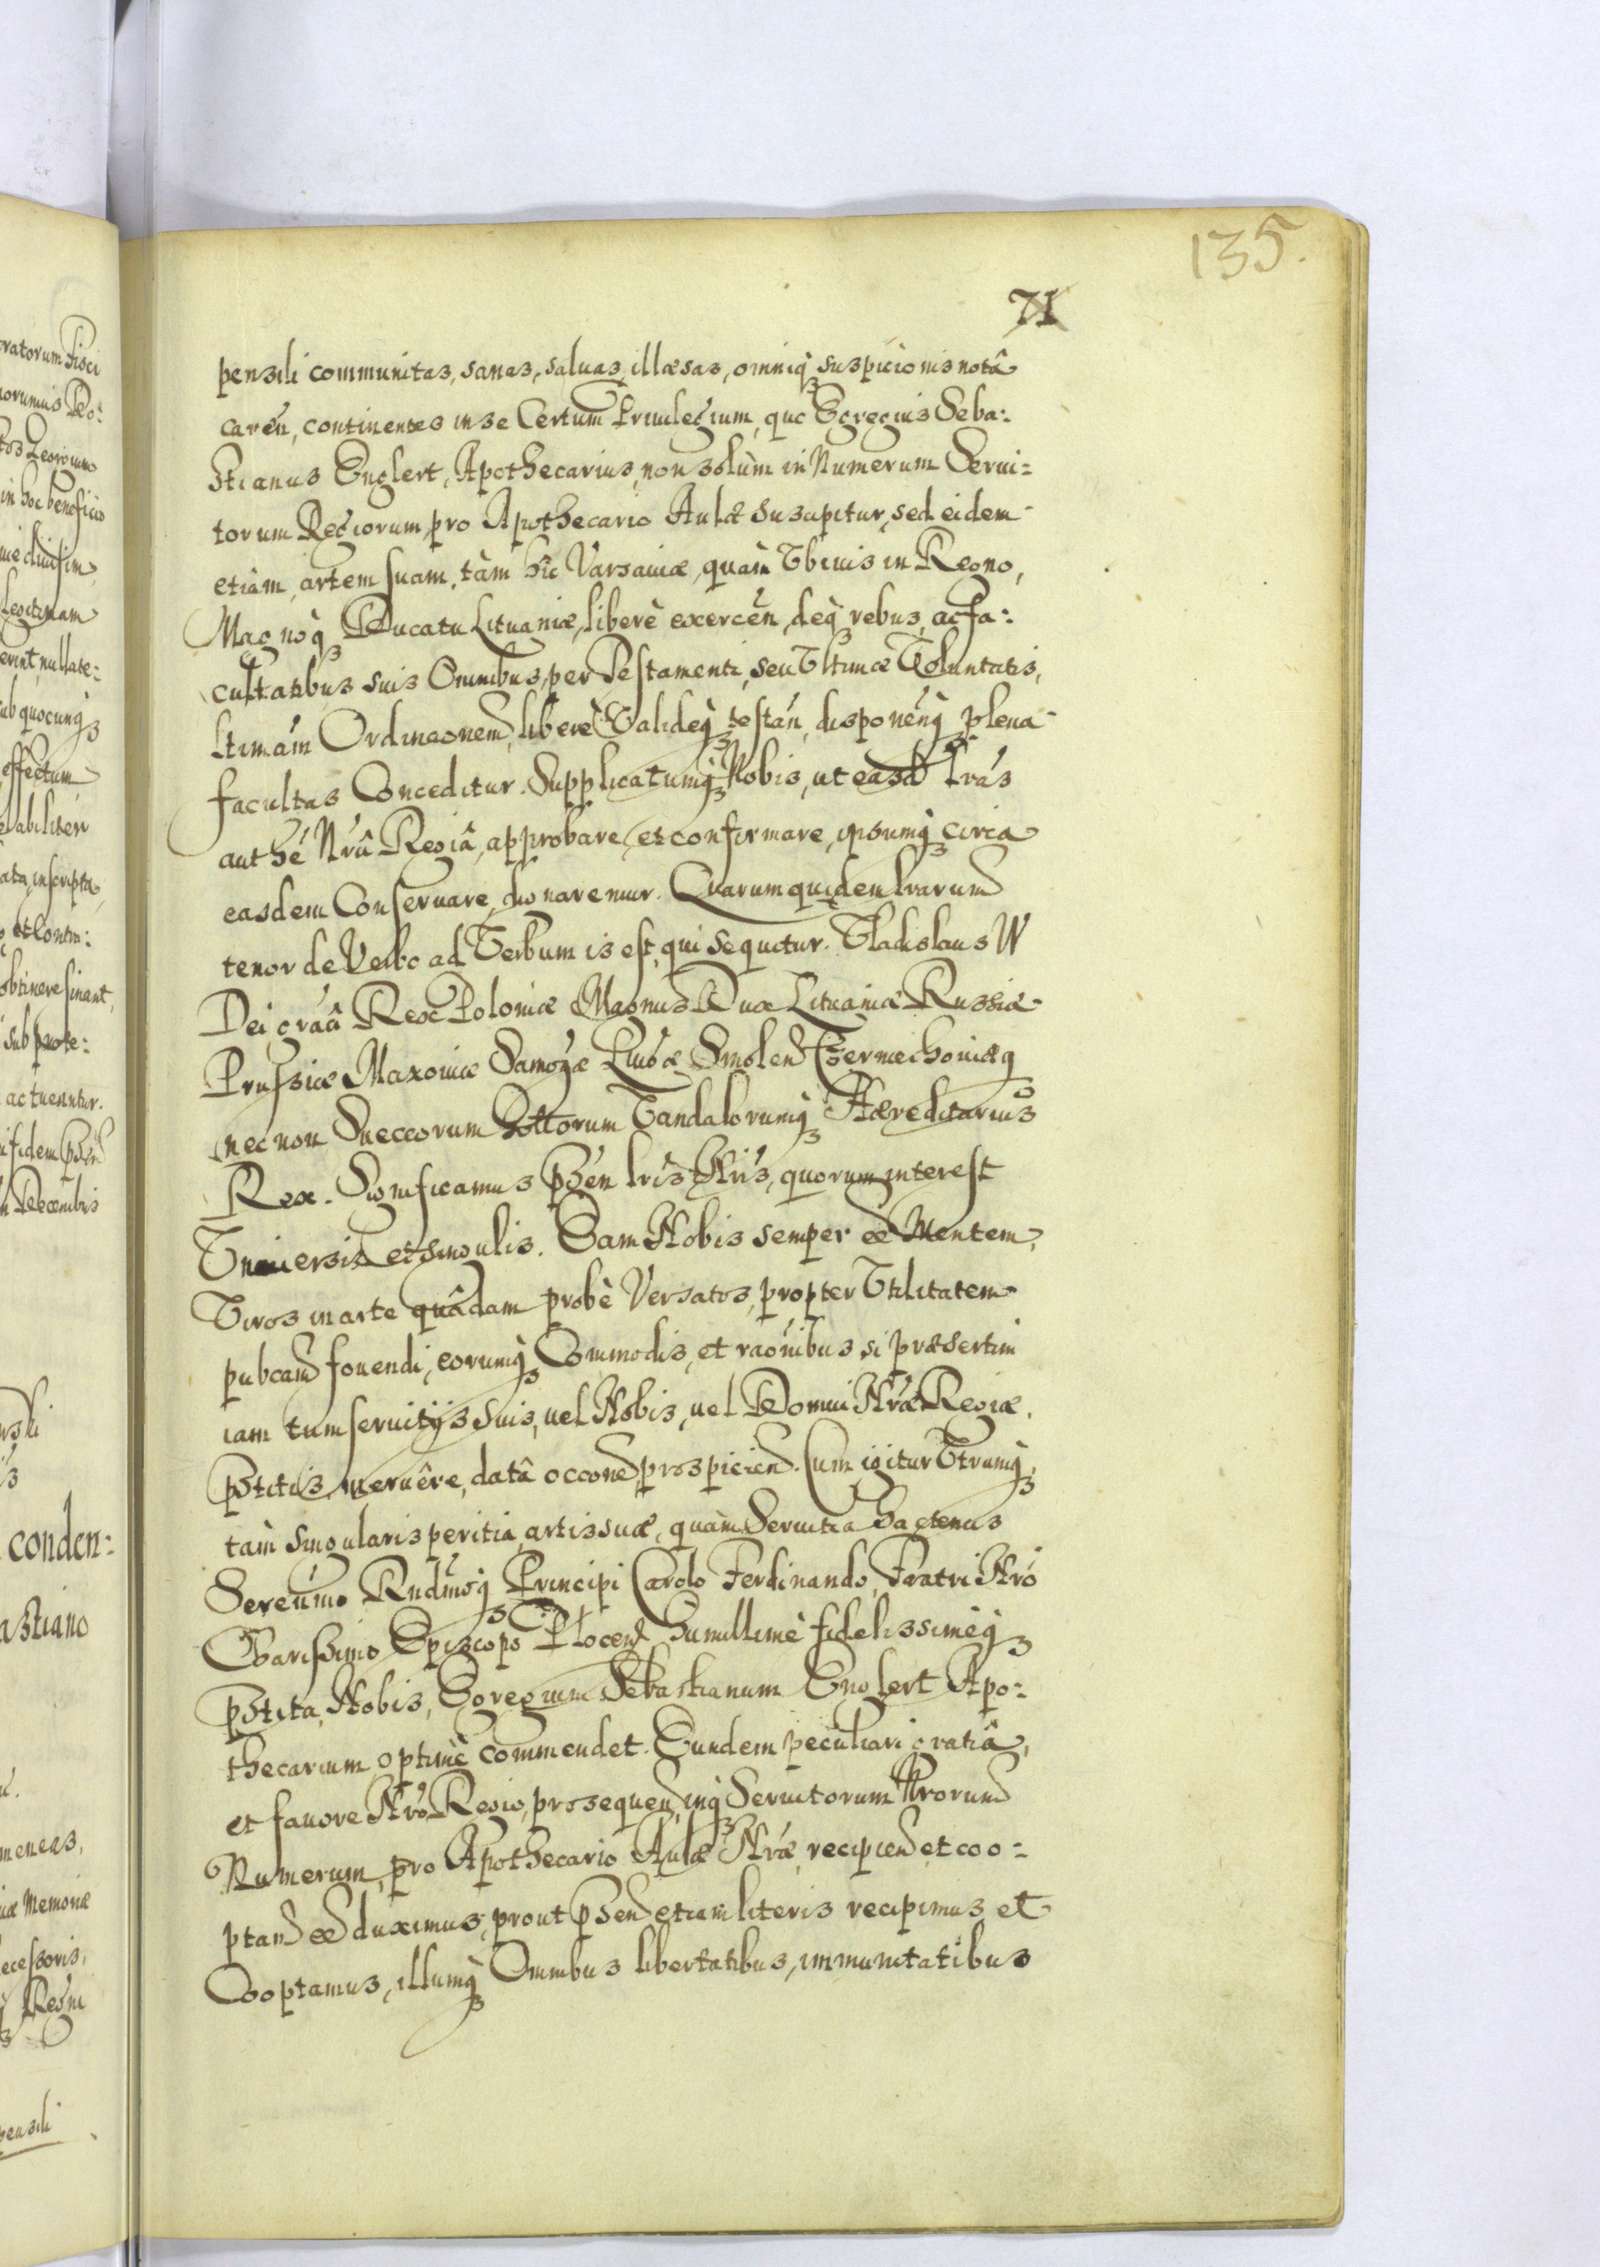 135.
71
pensili communitas, sanas, saluas, illæsas, omniq₃ suspicionis notâ
caren, continentes in se Certum Priuilegium, quo Egregius Seba:
stianus Englert, Apothecarius, non solùm in Numerum Serui:
torum Regiorum, pro Apothecario Aulæ suscipitur, sed eidem
etiàm, artem suam, tàm hîc Varsauiæ, quàm Vbiuis in Regno,
Magnoq₃ Ducatu Lituaniæ, liberè exercén, deq₃ rebus, ac fa:
cultatibus suis Omnibus, per Testamenti, seu Vltimæ Voluntatis,
ltimám Ordinaonem, liberè Valideq₃ testán, disponénq₃ plena
facultas Conceditur. Supplicatumq₃ Nobis, ut easd lrás
authé Nrâ Regiâ, approbare, et confirmare, ipsumq₃ circa
easdem Conseruare, dignaremur. Quarum quidem lrarum
tenor de Verbo ad Verbum is est, qui sequitur. Vladislaus IV
Dei graâ Rex Poloniæ Magnus Dux Lituaniæ Russiæ
Prussiæ Maxouiæ Samogæ Liuoæ Smolen Czerniechouiæq₃
necnon Sueccorum Gottorum Vandalorumq₃ Hæreditarius
Rex. Significamus pñsén lrís Nrís, quorum interest
Vniuersis et singulis. Eam Nobis semper eê Mentem,
Viros in arte quâdam probè Versatos, propter Vtilitatem
pubcam fouendi, eorumq₃ Commodis, et raoñibus si præsertim
iam tum seruitijs suis, uel Nobis, uel Domui Nræ Regiæ,
pstitis, meruêre, datâ occone prospiciend. Cum igitur Vtrumq₃,
tàm singularis peritia artis suæ, quàm Seruitia hactenus
Sereñmo Rndmoq₃ Principi Carolo Ferdinando, Fratri Nro
Charissimo Episcopo Plocen humillimè fidelissimèq₃
pstita, Nobis, Egregium Sebastianum Englert Apo:
thecarium optimè commendet. Eundem peculiari gratiâ,
et fauore Nro Regio, prosequen, inq₃ Seruitorum Nrorum
Numerum, pro Apothecario Aulæ Nræ, recipien et coo:
ptand eê duximus, prout psen etiam literis recipimus et
Cooptamus, illumq₃ Omnibus libertatibus, immunitatibus